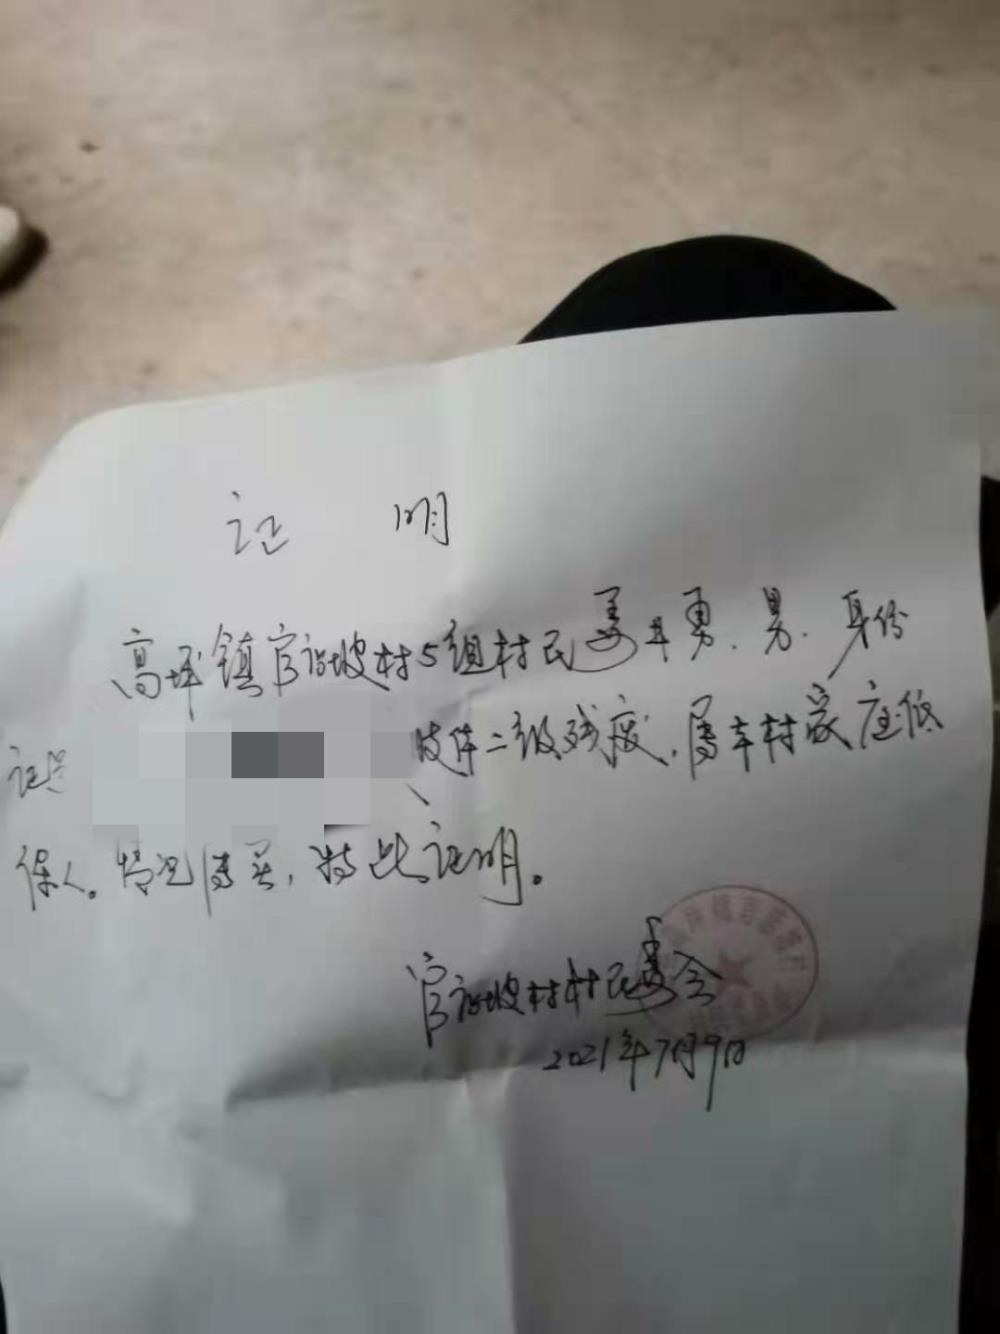 证 明
高坪镇官坡村5组村民姜勇、男、身份
证号 肢体二级残疾,属本村家庭低
保人。情况属实,特此证明。
官坡村村民委会
2021年7月9日